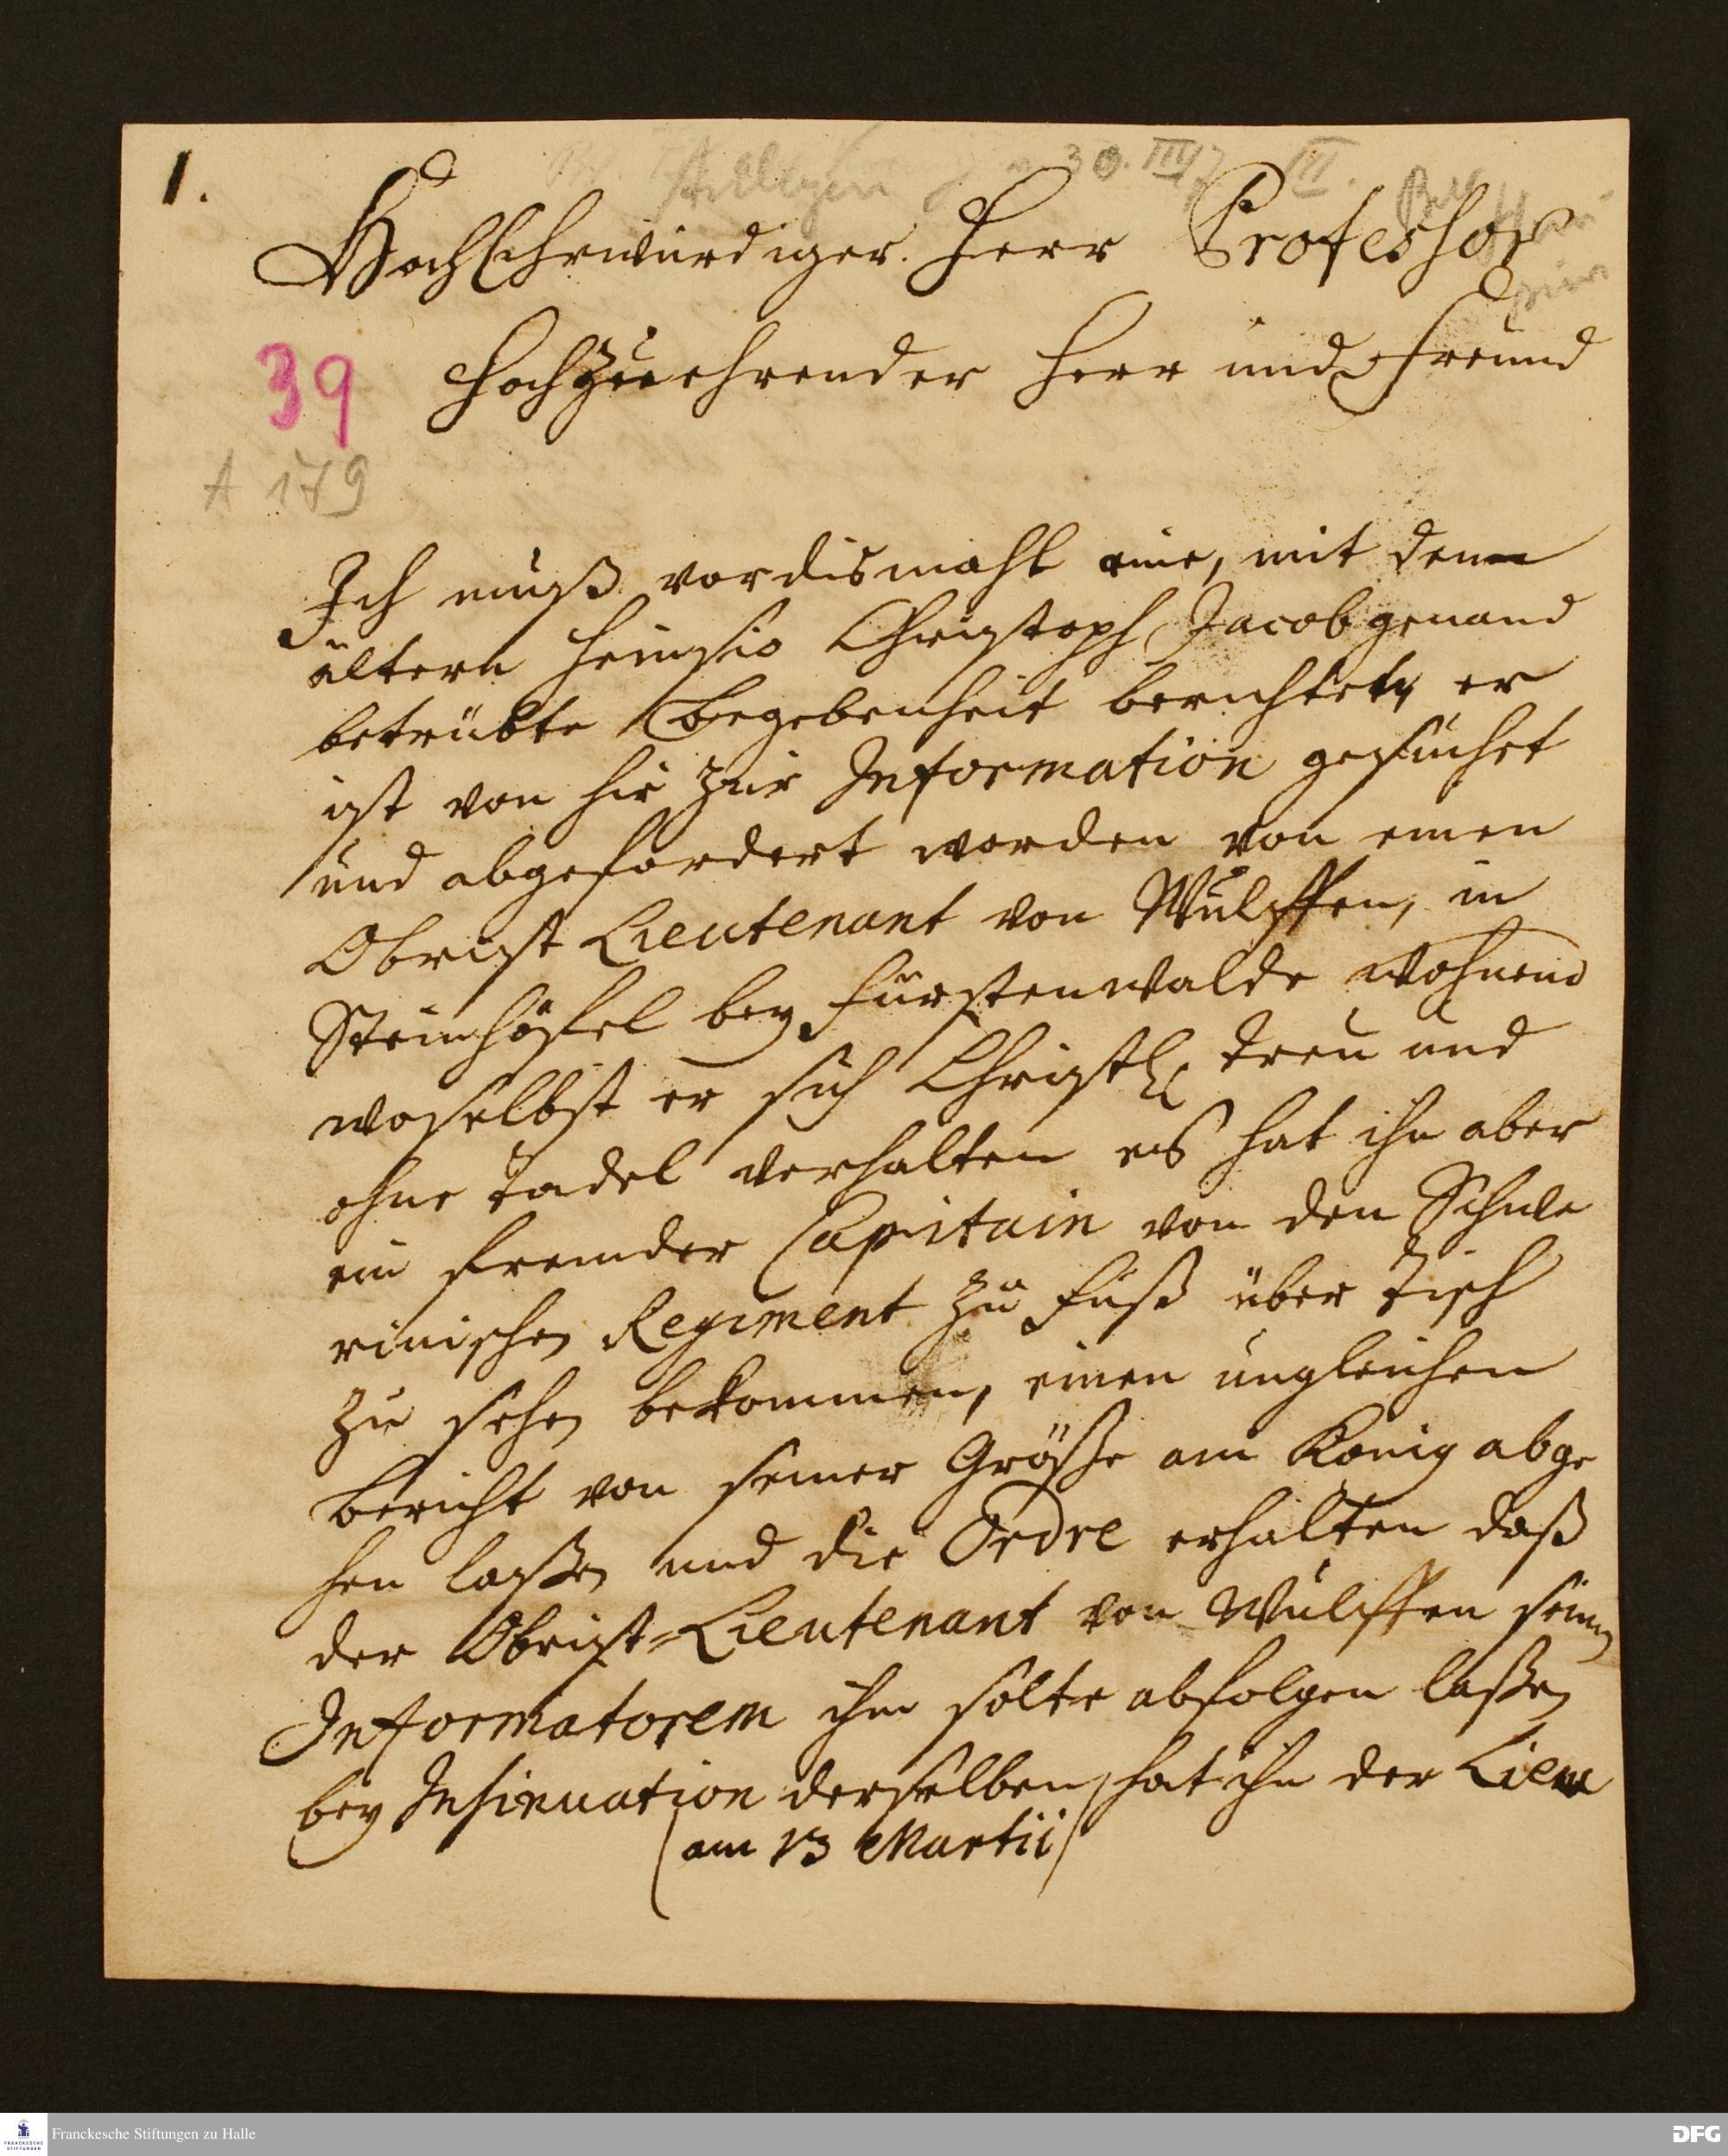 1.
30. III
HochEhrwürdiger Herr Professor
39
Hochzuehrender Herr und Freund
A 179
Ich muß vordismahl eine, mit dem
ältern Heinsio Christoph Jacob genand
betrübte Begebenheit berichten, er
ist von hir zur Information gesuchet
und abgefordert worden von einen
Obrist Lieutenant von Wulffen, in
Steinhöffel bey Fürstenwalde wohnend
woselbst er sich Christl. treu und
ohne Tadel verhalten es hat ihn aber
ein fremder Capitain von den Schwe
rinischen Regiment zu Fuß über Tisch
zu sehen bekommen, einen ungleichen
Bericht von seiner Größe am König abge
hen laßen und die Ordre erhalten daß
der Obrist-Lieutenant von Wulffen seinen
Informatorem ihm solte abfolgen laßen
bey Insinuation derselben, hat ihn der Lieu
(am 13 Martii)
FRANCKESCHE STIFTUNGEN
Franckesche Stiftungen zu Halle
DFG